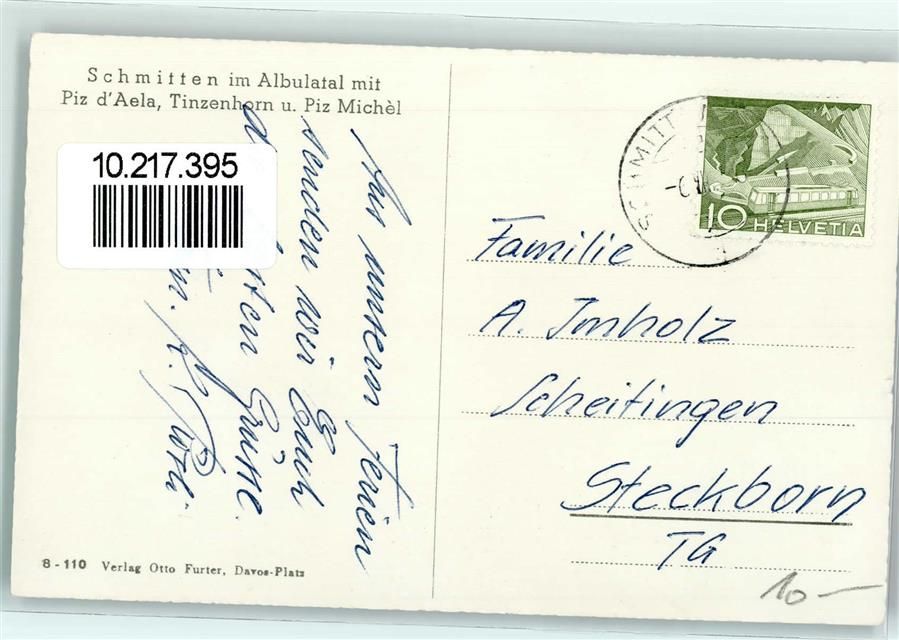 Schmitten im Albulatal mit
Piz d'Aela, Tinzenhorn u. Piz Michèl
10.217.395
Aus unsern Ferien
senden wir Euch
Grüsse.
Familie
A. Imholz
Scheitingen
Steckborn
TG
SCHMITT
10 HELVETIA
8-110 Verlag Otto Furter, Davos-Platz
10.-